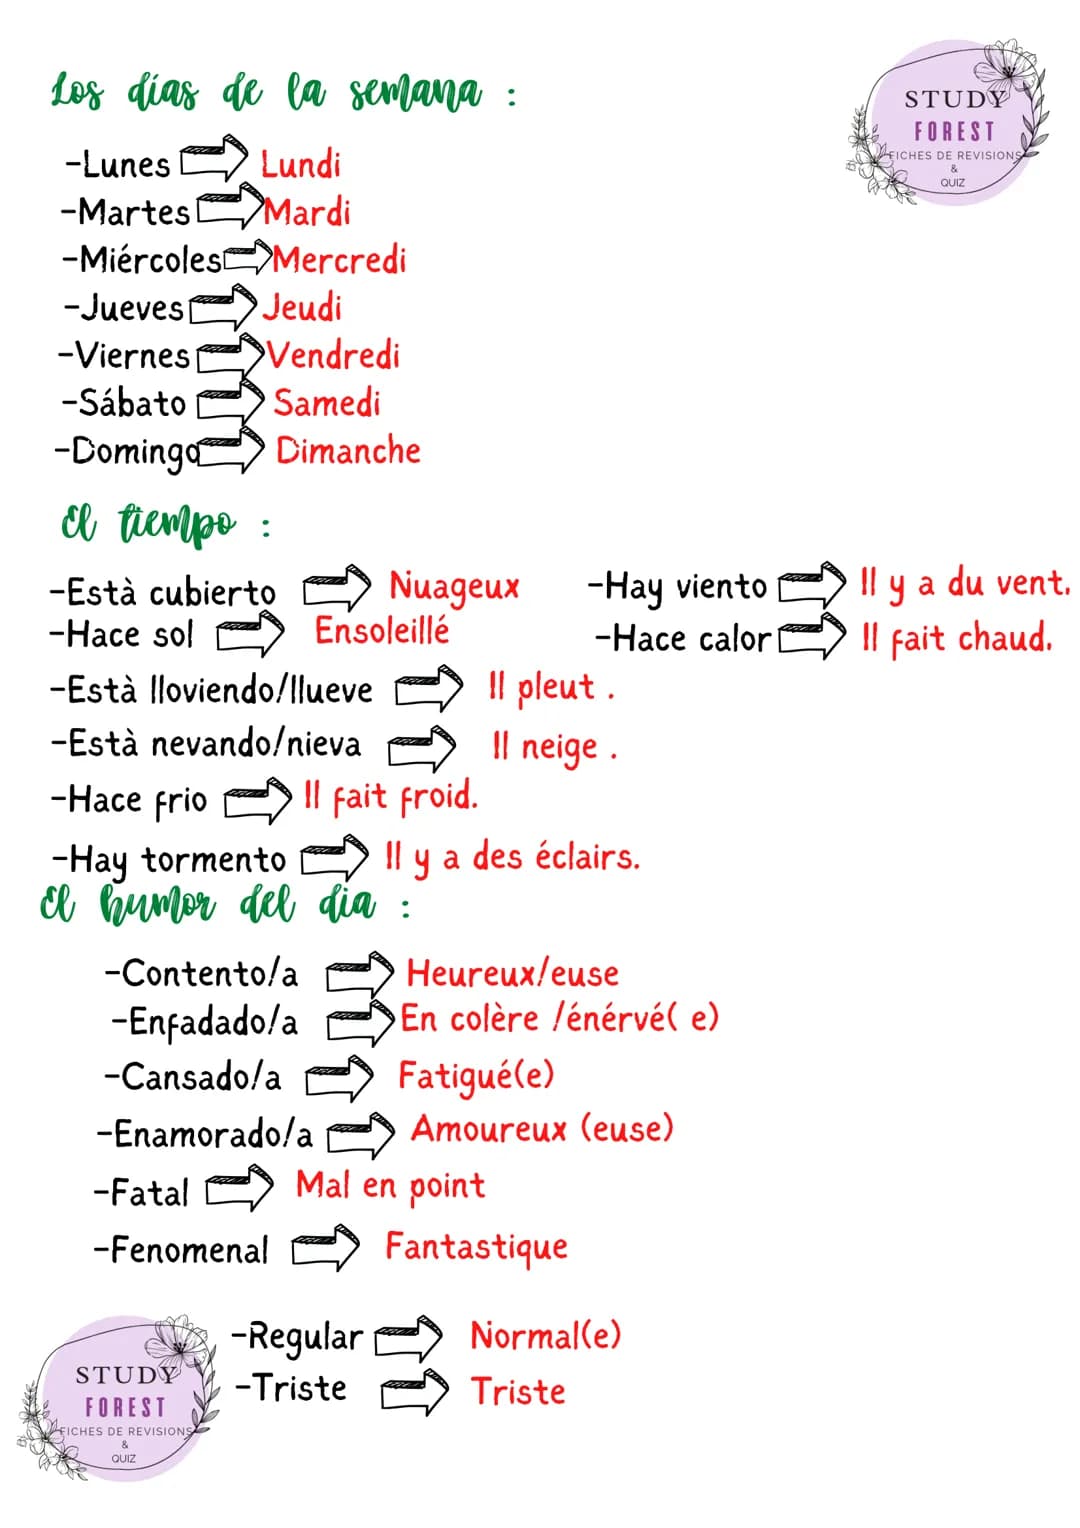 Los días de la semana :
STUDY
FOREST
FICHES DE REVISIONS
&
QUIZ
-Lunes Lundi
-Martes Mardi
-Miércoles Mercredi
-Jueves Jeudi
-Viernes Vendredi
-Sábato Samedi
-Domingo Dimanche
El tiempo :
-Està cubierto Nuageux
-Hace sol Ensoleillé
-Està lloviendo/llueve Il pleut .
-Està nevando/nieva Il neige .
-Hace frio Il fait froid.
-Hay tormento Il y a des éclairs.
-Hay viento Il y a du vent.
-Hace calor Il fait chaud.
El humor del dia :
-Contento/a Heureux/euse
-Enfadado/a En colère /énérvé( e)
-Cansado/a Fatigué(e)
-Enamorado/a Amoureux (euse)
-Fatal Mal en point
-Fenomenal Fantastique
-Regular Normal(e)
-Triste Triste
STUDY
FOREST
FICHES DE REVISIONS
&
QUIZ